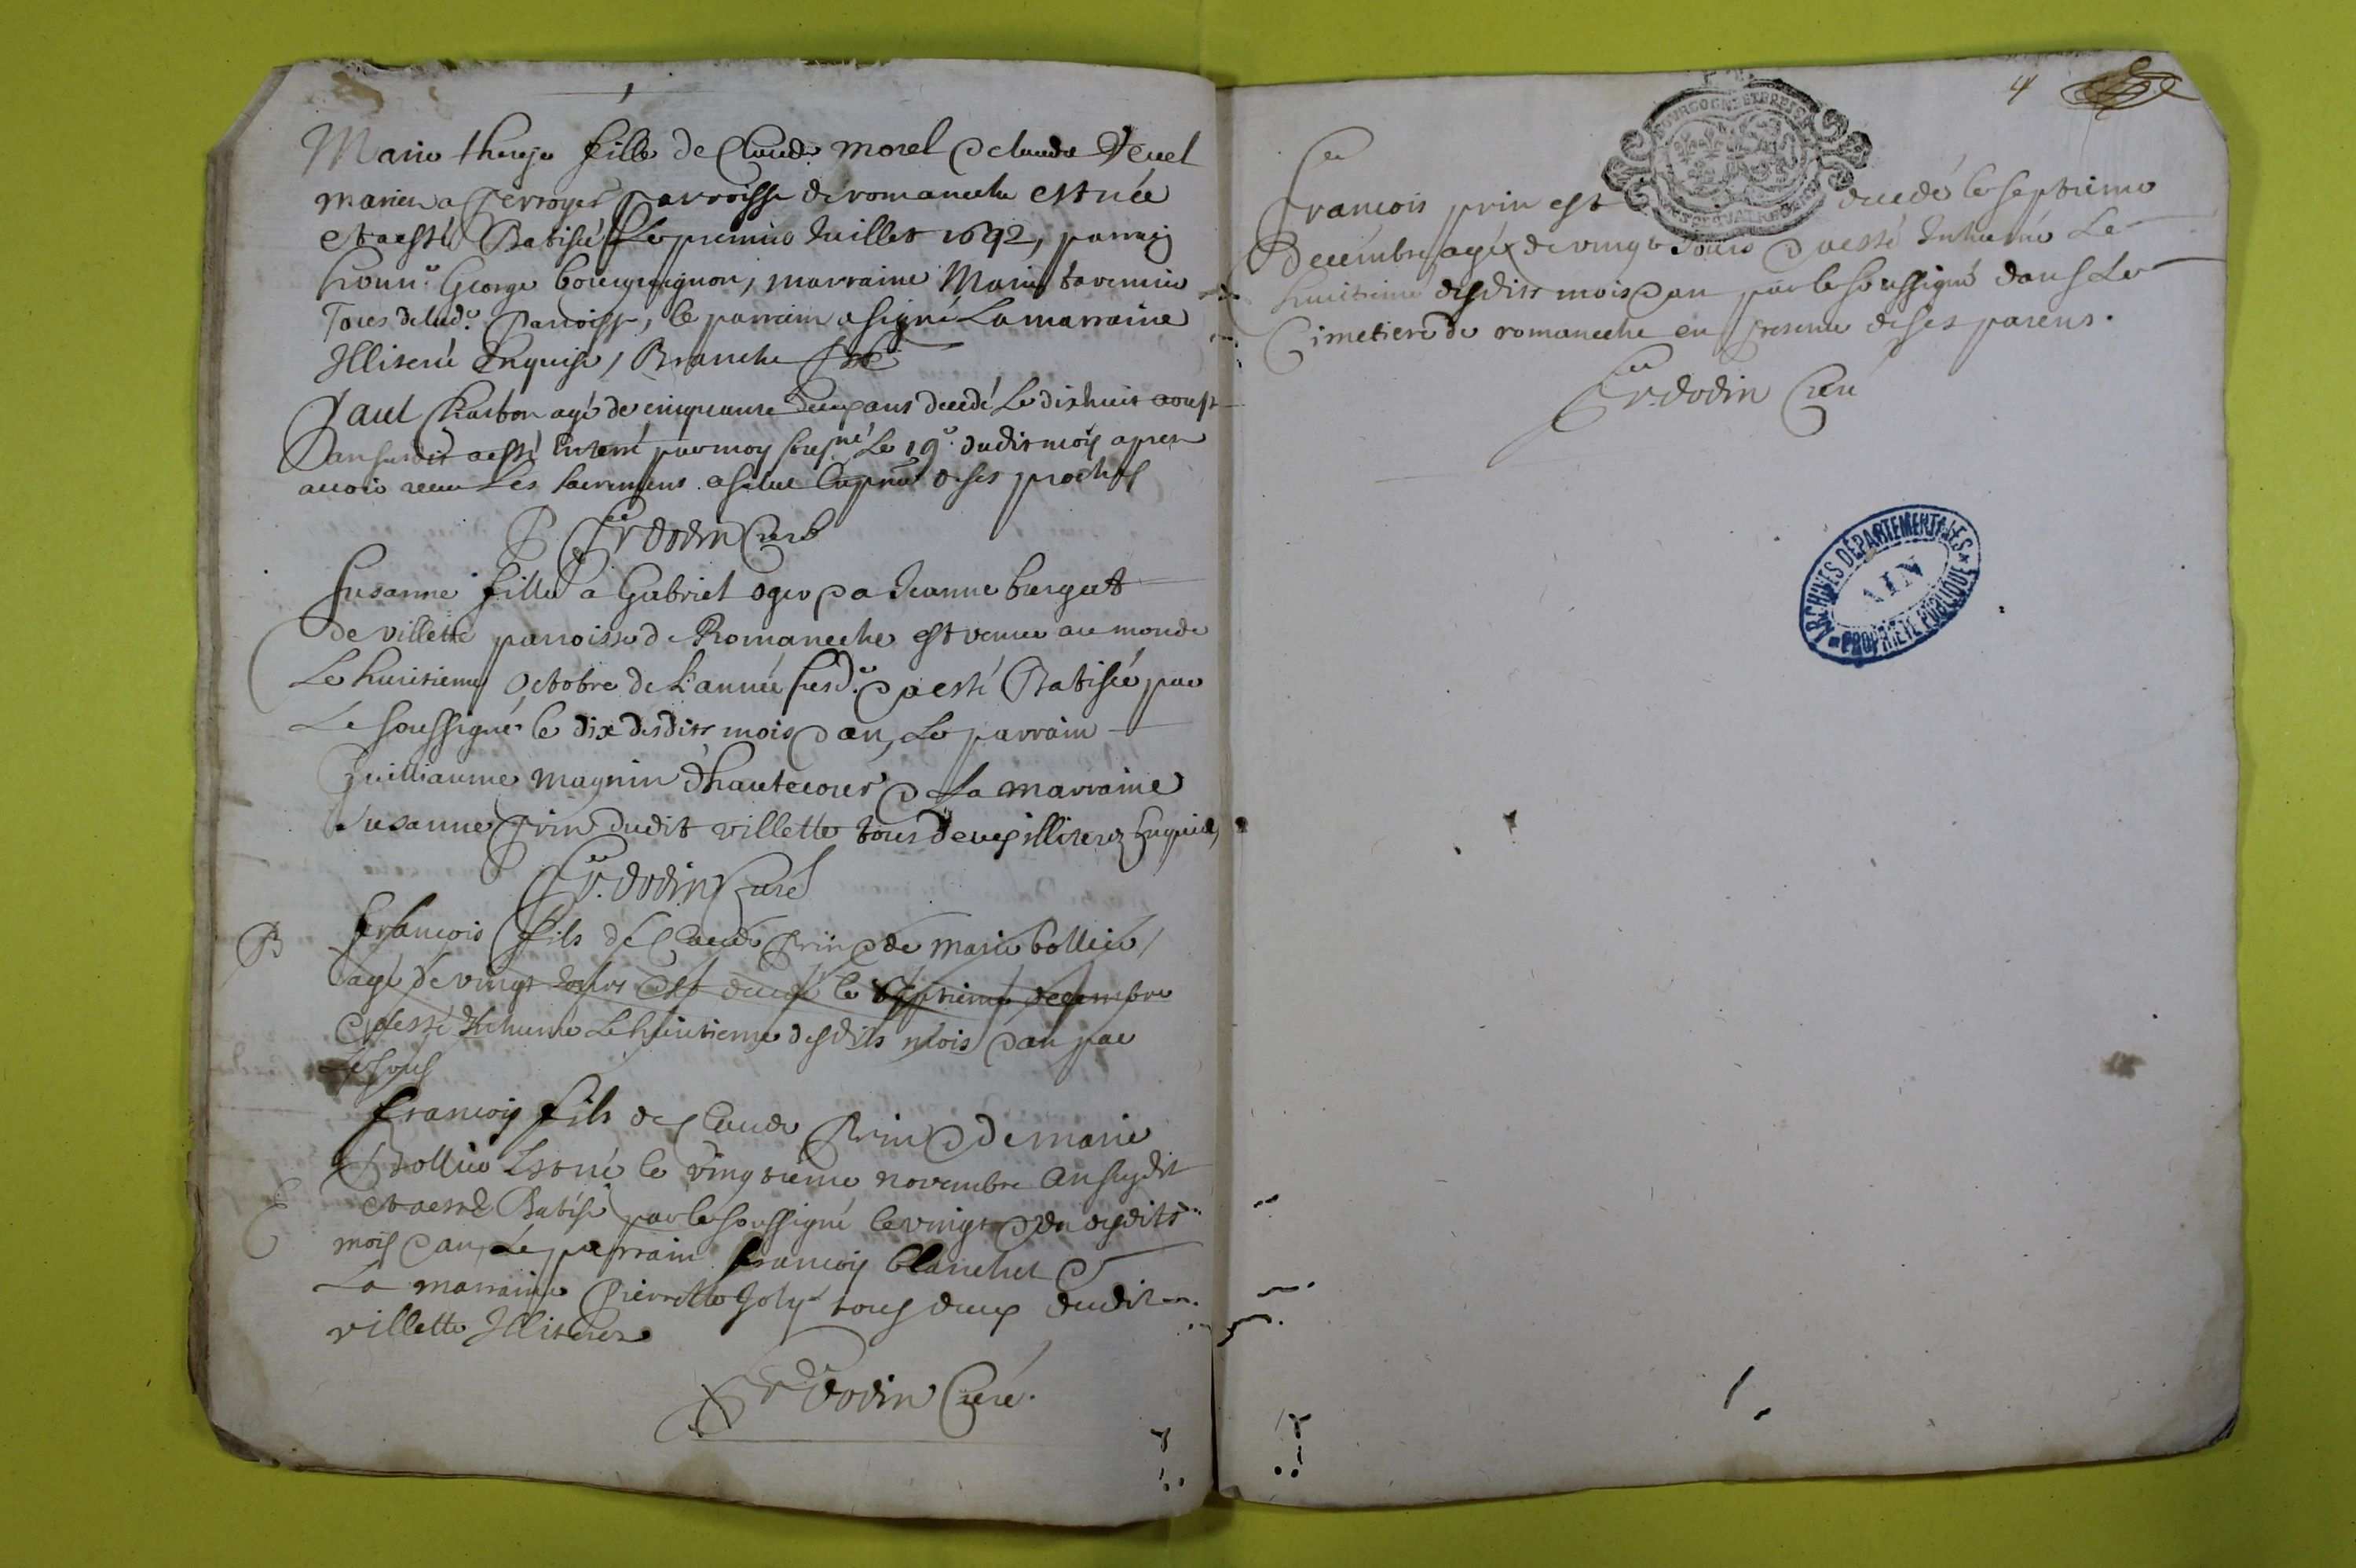 Marie therese fille de Claude morel & claude
maries a perroges parroisse de romaneche est née
et a esté Batisée Le premier Juillet 1692, parrain
honn.e George bourguignon, marraine Marie tavernier
Tous de lad.e Parroisse, le parrain a signé La marraine
Illiteré Enquise, Branche
Paul Charbon agé de cinquante deux ans decedé Le dixhuit aoust
an susdit a esté Enterré par moy sous.né Le 19e dudit mois apres
avoir receu Les sacremens a esté de ses proches
Fr dodin Curé
Susanne fille a Gabriel oger & a Jeanne burgat
de villette parroisse de Romaneche est venue au monde
Le huitieme Octobre de L'année susd.e & a esté Batisée par
Le soussigné le dix desdits mois & an, Le parrain
Guilliaume magnin d'hautecour & La marraine
Susanne Prin dudit villette tous deux illiterez Enquis
Fr. dodin Curé
B
francois fils de Claude Prin & de Marie bollier
agé de vingt Jours est decedé le septieme decembre
& a esté Inhumé Le huitieme desdits mois & an par
Le sous
francois fils de Claude Prin & de marie
Bollier Est né le vingtieme novembre an susdit
et a esté Batisé par le soussigné le vingt & un desdits
mois & an, Le parrain francois blanchet &
La marraine Pierrette Joly tous deux dudit
villette Illiterez
Fr dodin Curé.
4
BOURGOGNE ET BRESSE
francois prin est decedé le septieme
Decembre agé de vingt Jours & a esté Inhumé Le
huitieme desdits mois & an par le soussigné dans Le
Cimetiere de romaneche en presence de ses parens.
Fr. dodin Curé
ARCHIVES DÉPARTEMENTALES
AIN
PROPRIÉTÉ PUBLIQUE